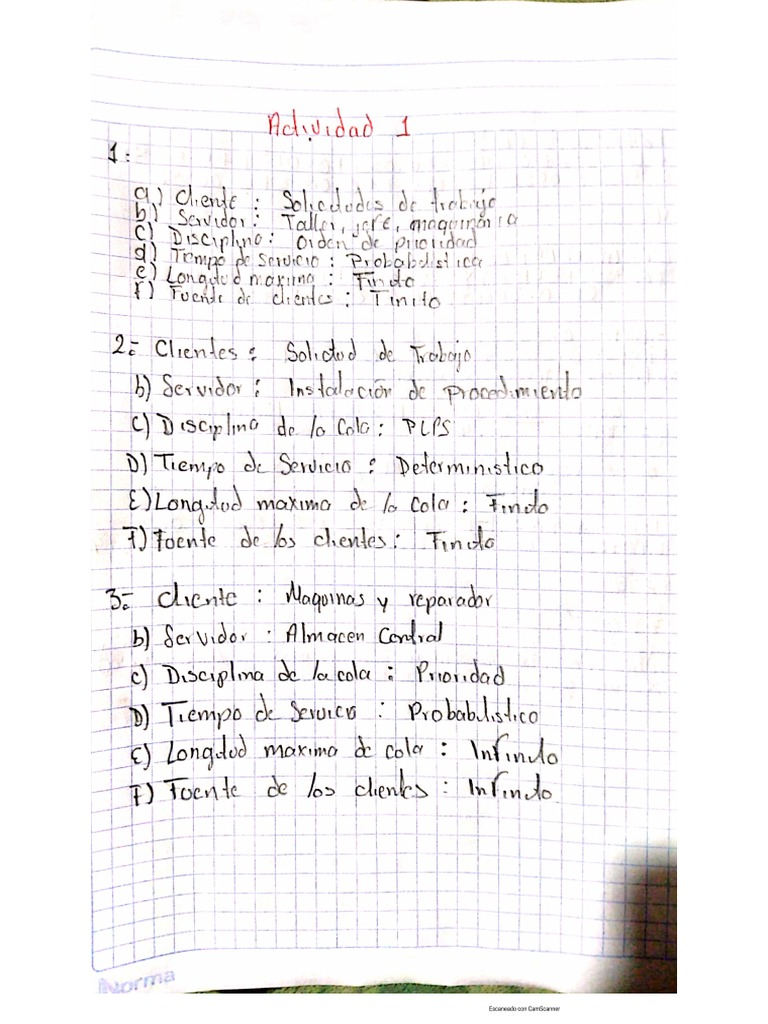 Actividad 1
1:
a) Cliente : Solicitudes de trabajo
b) Servidor : Taller, jefe, maquinaria
c) Disciplina : Orden de prioridad
d) Tiempo de servicio : Probabilistica
e) Longitud maxima : Finito
f) Fuente de clientes : Finito
2:- Clientes : Solicitud de Trabajo
b) Servidor : Instalación de Procedimiento
C) Disciplina de la Cola : PLPS
D) Tiempo de Servicio : Deterministico
E) Longitud maxima de la Cola : Finito
F) Fuente de los clientes : Finito
3:- Cliente : Maquinas y reparador
b) Servidor : Almacen Central
c) Disciplina de la cola : Prioridad
D) Tiempo de Servicio : Probabilistico
E) Longitud maxima de cola : Infinito
F) Fuente de los clientes : Infinito
Norma
Escaneado con CamScanner